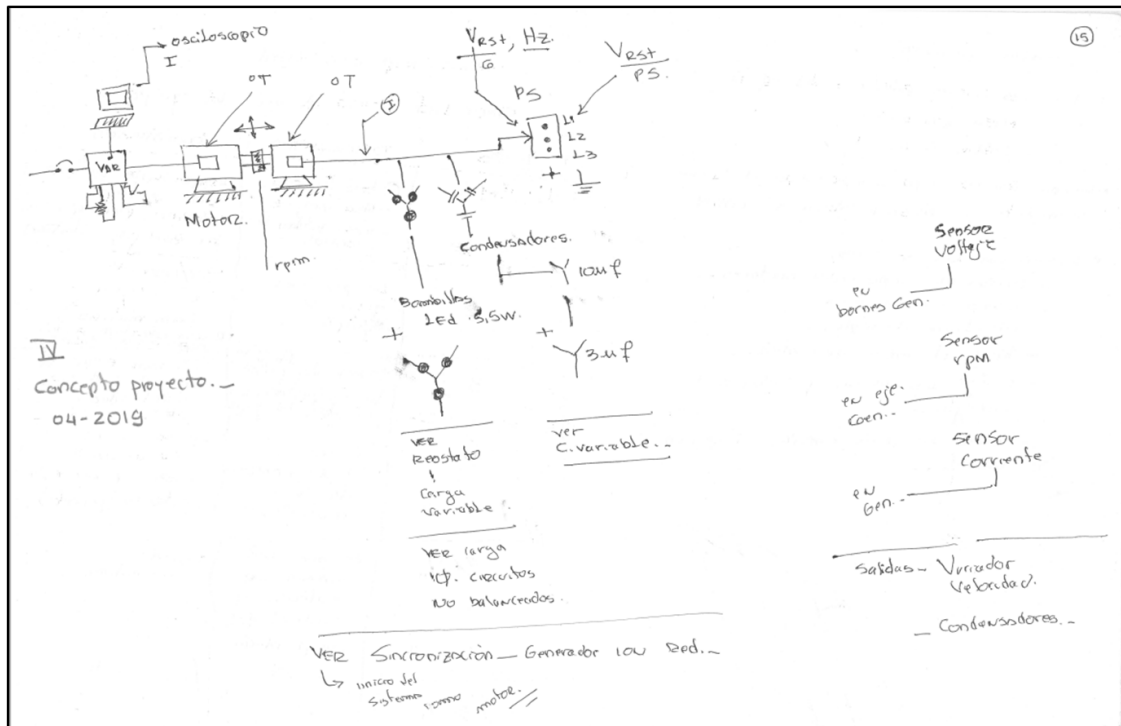 15
osciloscopio
I
VRst, Hz.
G
VRst
PS.
oT
oT
I
PS
L1
L2
L3
+
VDR
V
Motor.
rpm.
Condensadores.
10uf
+
3uf
Bombillos
LEd 5,5W.
+
IV
Concepto proyecto._
04-2019
VER
Reostato
Carga
variable.
VER carga
1Φ. circuitos
No balanceados.
ver
C.variable._
Sensor
Voltaje
en
bornes Gen.
Sensor
rpm
en eje.
Sensor
Corriente
en
Gen.
Salidas_ Variador
Velocidad.
_ Condensadores._
VER Sincronización_ Generador con Red._
inicio del
sistema como motor.